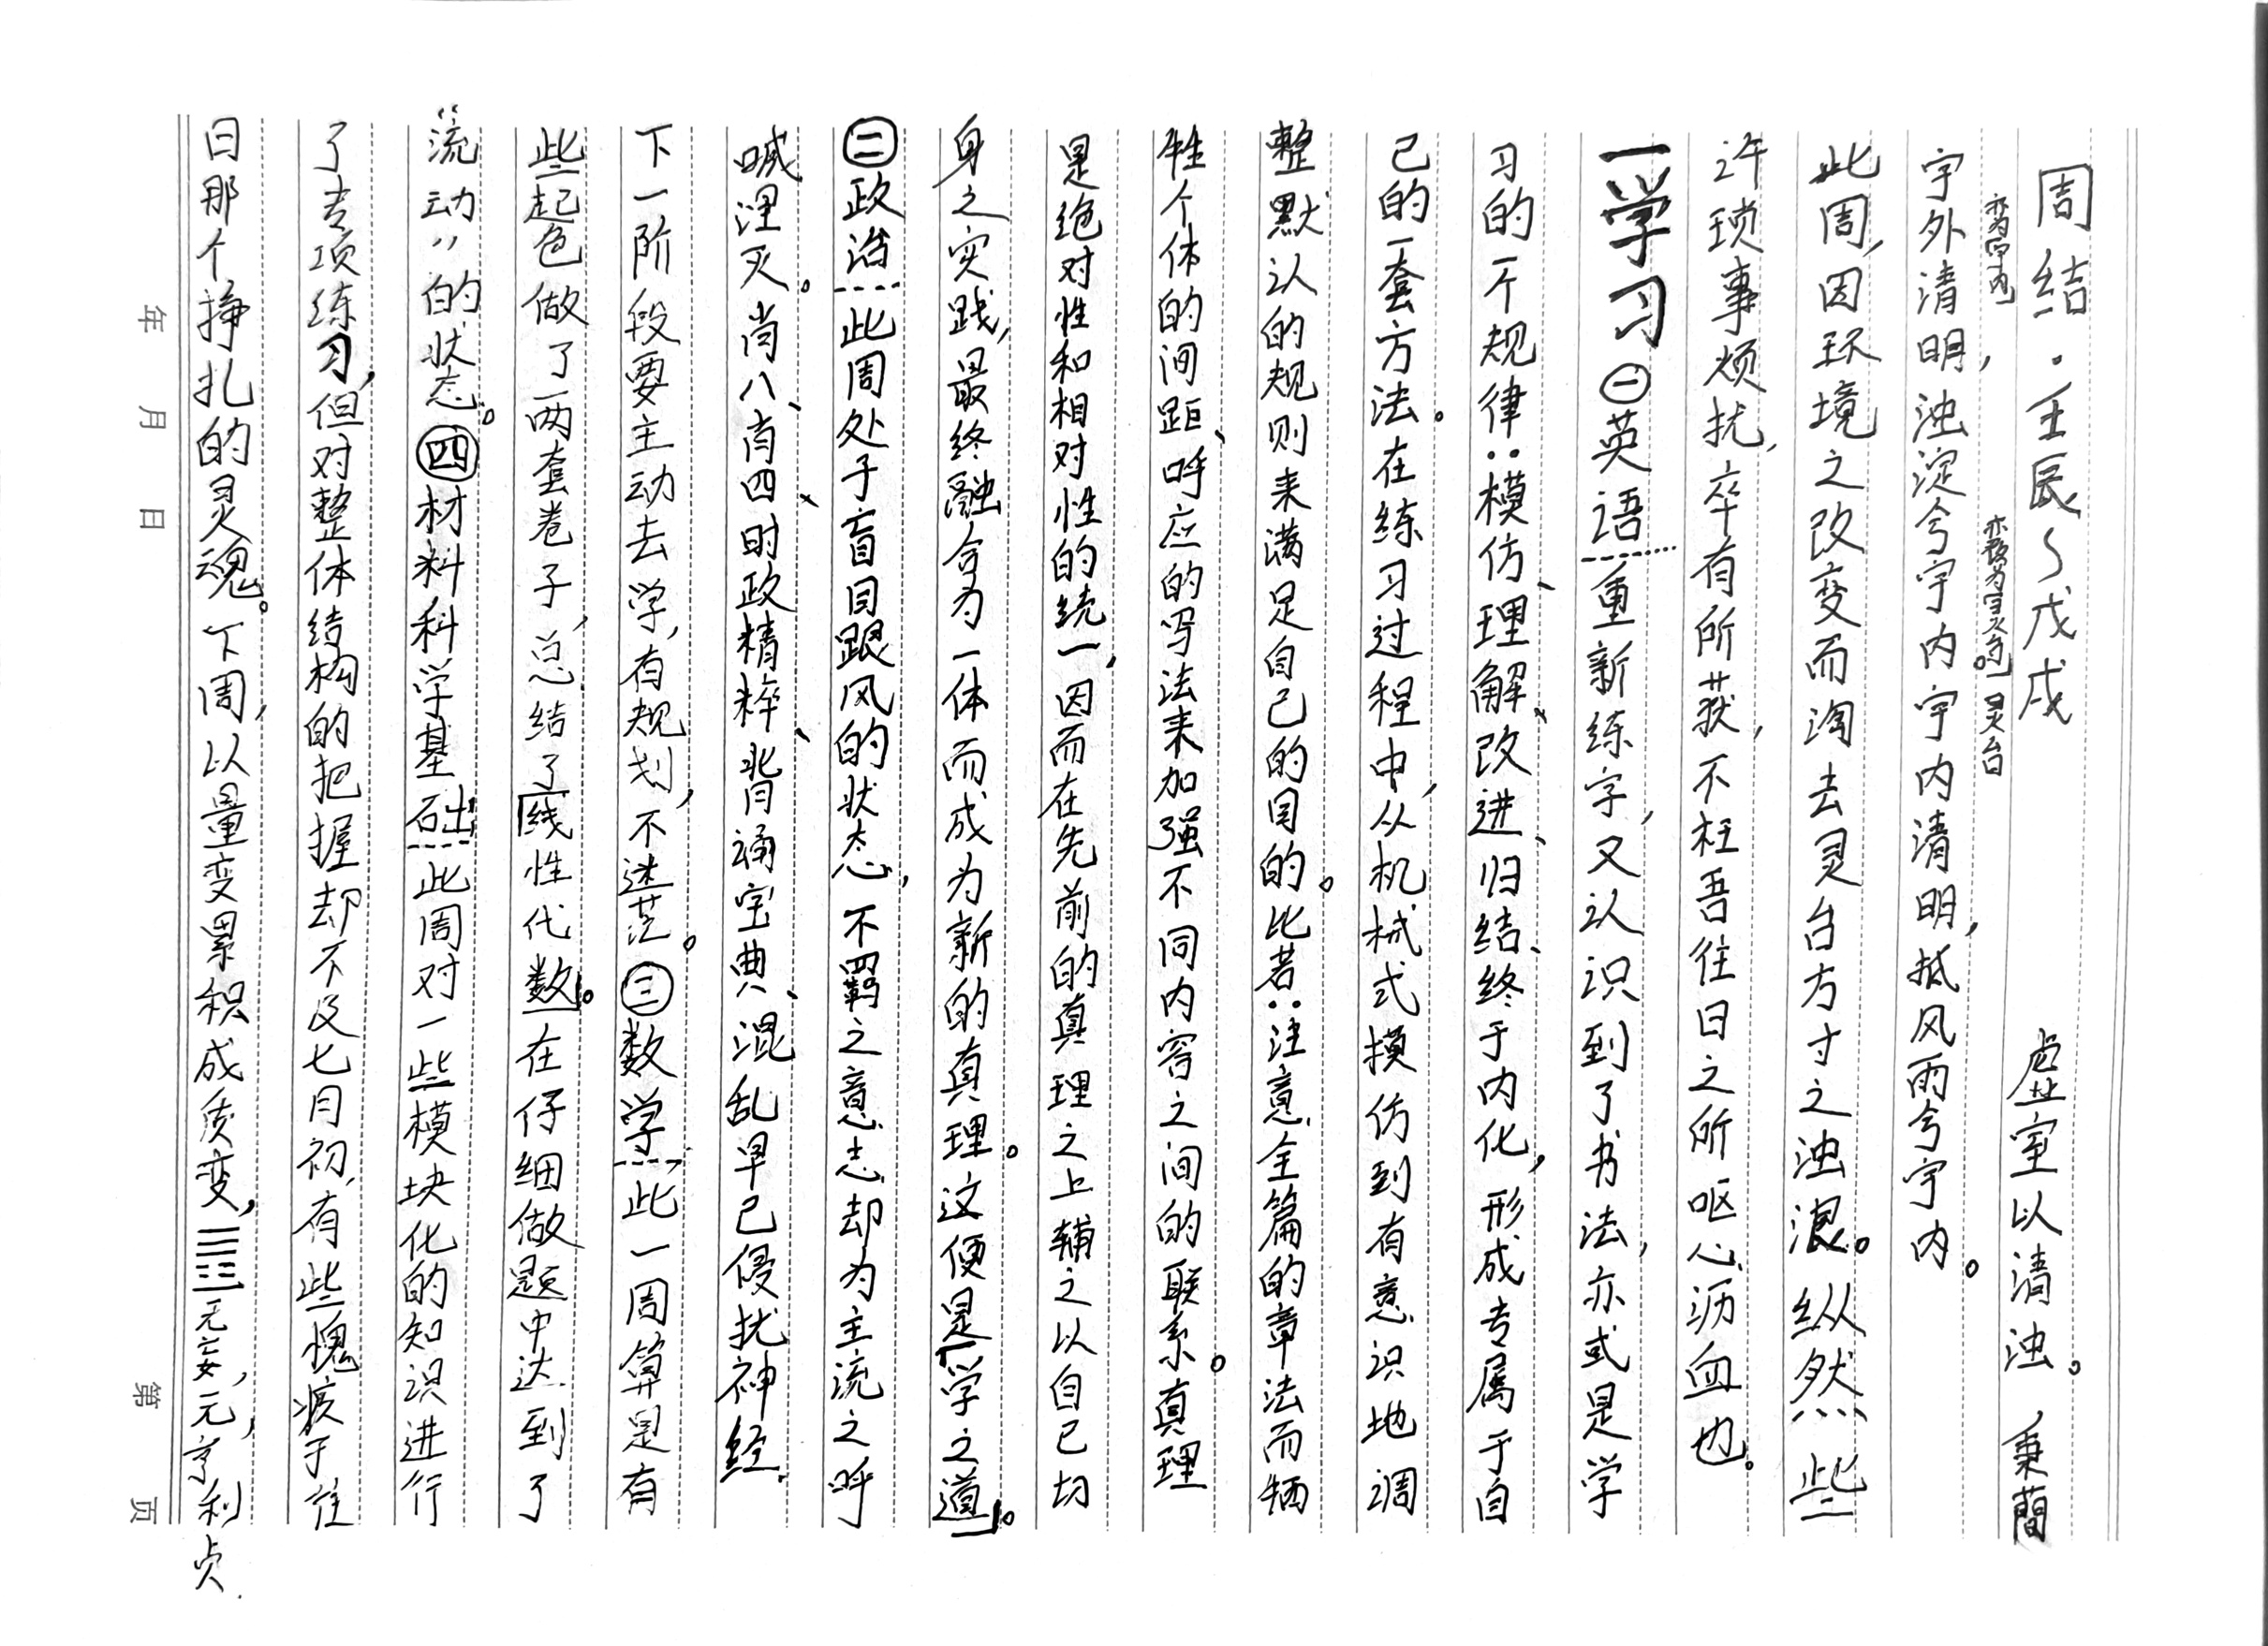 周结·壬辰~戊戌 虚室以清浊。秉蘭
字外清明，浊淀兮宇内宇内清明，抵风雨兮宇内。
此周，因环境之改变而淘去灵台方寸之浊浪。纵然些
许琐事烦扰，卒有所获，不枉吾往日之所呕心沥血也。
一学习㊀英语重新练字，又认识到了书法，亦或是学
习的一个规律：模仿、理解、改进、归结、终于内化，形成专属于自
己的一套方法。在练习过程中，从机械式摸仿到有意识地调
整默认的规则来满足自己的目的。比若：注意全篇的章法而牺
牲个体的间距、呼应的写法来加强不同内容之间的联系。真理
是绝对性和相对性的统一，因而在先前的真理之上辅之以自己切
身之实践，最终融会为一体而成为新的真理。这便是「学之道」。
㊁政治此周处于盲目跟风的状态，不羁之意志却为主流之呼
喊湮灭。肖八、肖四、时政精粹、背诵宝典、混乱早已侵扰神经.
下一阶段要主动去学，有规划，不迷茫。㊂数学此一周算是有
些起色做了两套卷子，总结了「线性代数」。在仔细做题中达到了
“流动”的状态。㊃材料科学基础此周对一些模块化的知识进行
了专项练习，但对整体结构的把握却不及七月初，有些愧疚于往
日那个挣扎的灵魂。下周，以量变累积成质变，䷘无妄，元，亨利贞.
年 月 日 第 页